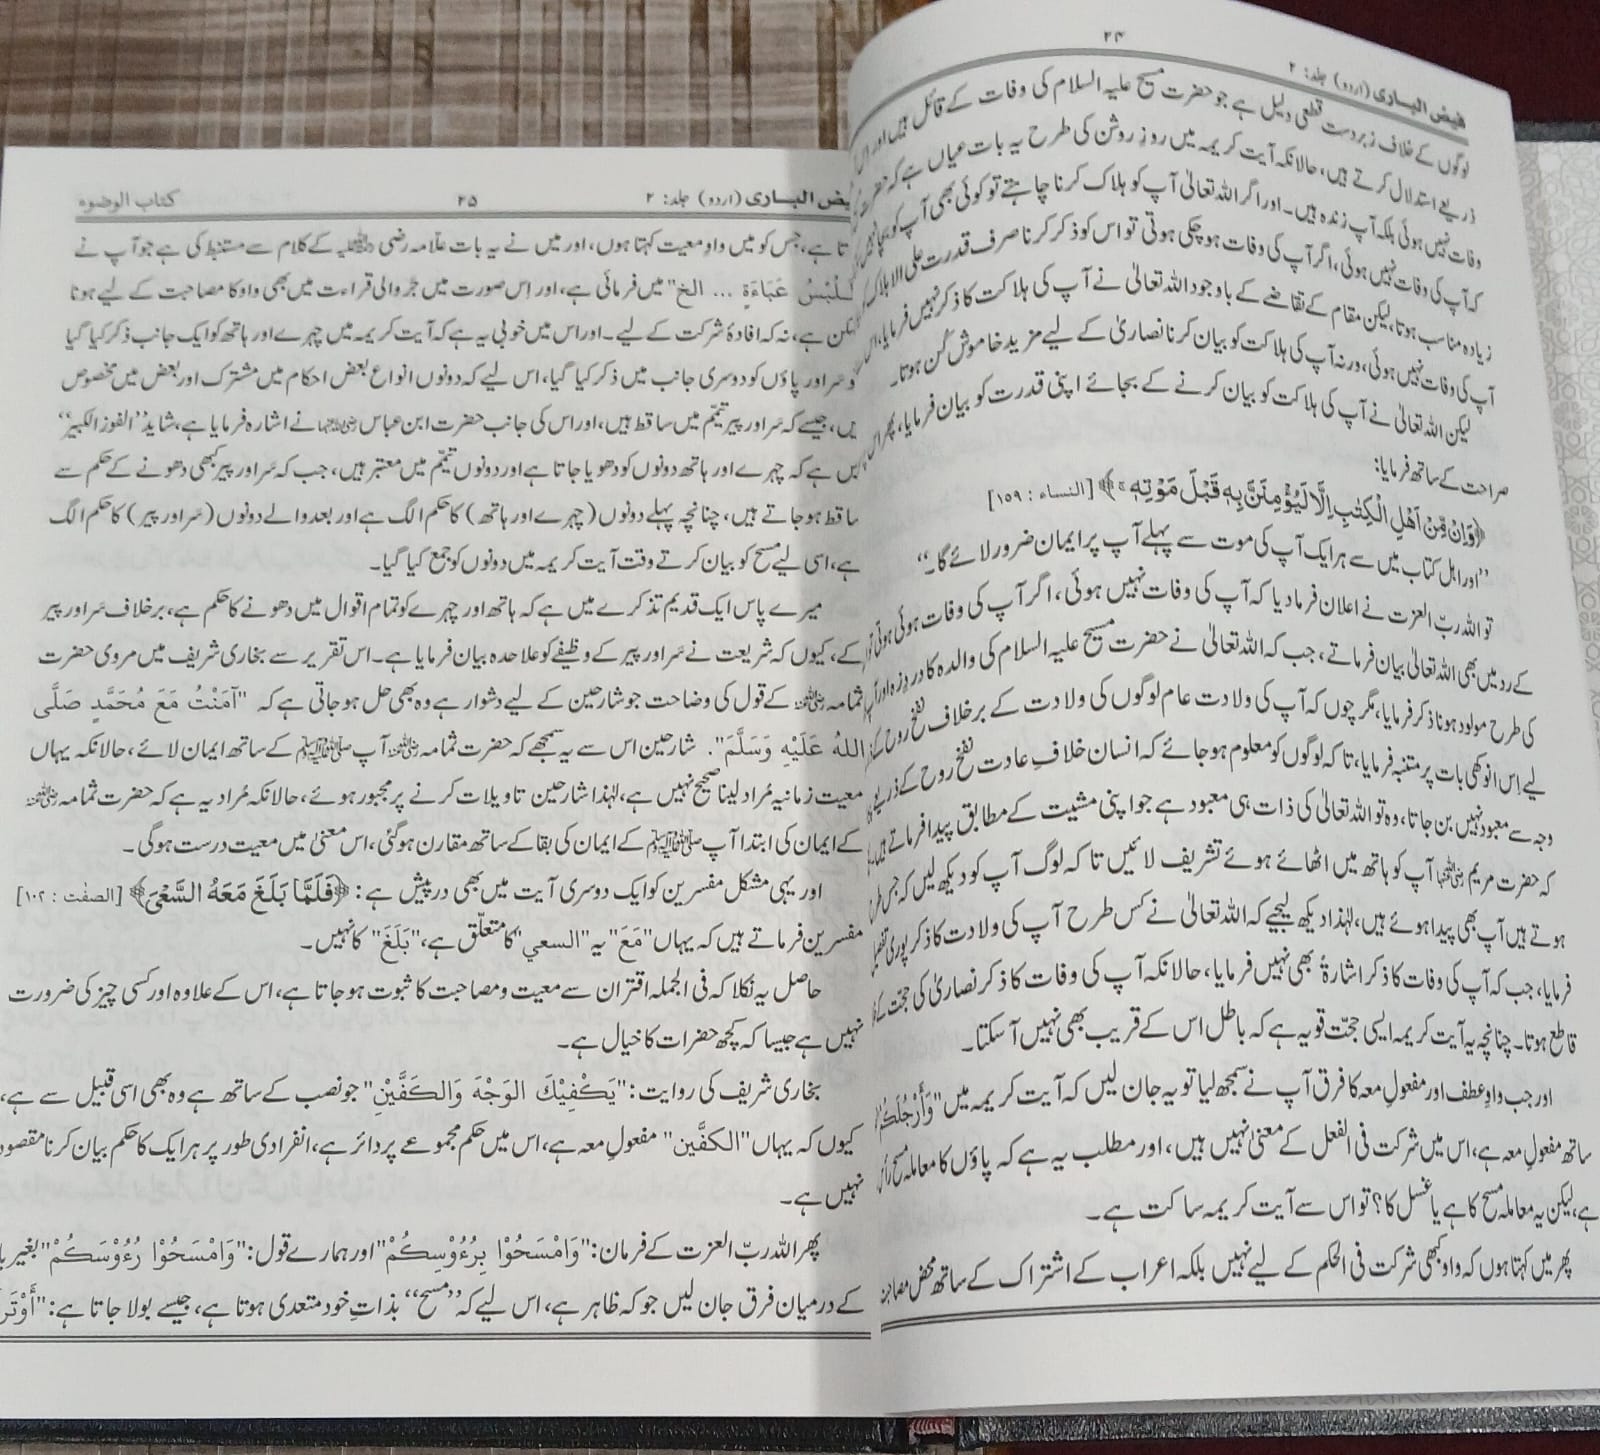 ۲۴
فیض الباری (اردو) جلد: ۲
لوگوں کے خلاف زبردست قطعی دلیل ہے جو حضرت مسیح علیہ السلام کی وفات کے قائل ہیں اور اس
ذریعے استدلال کرتے ہیں، حالانکہ آیت کریمہ میں روزِ روشن کی طرح یہ بات عیاں ہے کہ حضرت
وفات نہیں ہوئی بلکہ آپ زندہ ہیں۔ اور اگر اللہ تعالیٰ آپ کو ہلاک کرنا چاہتے تو کوئی بھی آپ کو بچا نہیں
کہ آپ کی وفات نہیں ہوئی، اگر آپ کی وفات ہوچکی ہوتی تو اس کو ذکر کرنا صرف قدرت علی الاہلاک
زیادہ مناسب ہوتا، لیکن مقام کے تقاضے کے باوجود اللہ تعالیٰ نے آپ کی ہلاکت کا ذکر نہیں فرمایا، اس
آپ کی وفات نہیں ہوئی، ورنہ آپ کی ہلاکت کو بیان کرنا نصاریٰ کے لیے مزید خاموش کُن ہوتا۔
لیکن اللہ تعالیٰ نے آپ کی ہلاکت کو بیان کرنے کے بجائے اپنی قدرت کو بیان فرمایا، پھر اس
صراحت کے ساتھ فرمایا:
﴿وَاِنْ مِّنْ اَهْلِ الْكِتٰبِ اِلَّا لَيُؤْمِنَنَّ بِهٖ قَبْلَ مَوْتِهٖ﴾ [النساء : ۱۵۹]
”اور اہل کتاب میں سے ہر ایک آپ کی موت سے پہلے آپ پر ایمان ضرور لائے گا۔“
تو اللہ ربّ العزت نے اعلان فرمادیا کہ آپ کی وفات نہیں ہوئی، اگر آپ کی وفات ہوئی ہوتی تو
کے رد میں بھی اللہ تعالیٰ بیان فرماتے، جب کہ اللہ تعالیٰ نے حضرت مسیح علیہ السلام کی والدہ کا دردِ زہ اور آپ
کی طرح مولود ہونا ذکر فرمایا، مگر چوں کہ آپ کی ولادت عام لوگوں کی ولادت کے برخلاف نفخِ روح کے
لیے اِس انوکھی بات پر متنبہ فرمایا، تاکہ لوگوں کو معلوم ہوجائے کہ انسان خلافِ عادت نفخِ روح کے ذریعے
وجہ سے معبود نہیں بن جاتا، وہ تو اللہ تعالیٰ کی ذات ہی معبود ہے جو اپنی مشیت کے مطابق پیدا فرماتے ہیں،
کہ حضرت مریم رضی اللہ عنہا آپ کو ہاتھ میں اٹھائے ہوئے تشریف لائیں تاکہ لوگ آپ کو دیکھ لیں کہ جس طرح
ہوتے ہیں آپ بھی پیدا ہوئے ہیں، لہٰذا دیکھ لیجیے کہ اللہ تعالیٰ نے کس طرح آپ کی ولادت کا ذکر پوری تفصیل
فرمایا، جب کہ آپ کی وفات کا ذکر اشارۃً بھی نہیں فرمایا، حالانکہ آپ کی وفات کا ذکر نصاریٰ کی حجت کے
قاطع ہوتا۔ چنانچہ یہ آیت کریمہ ایسی حجّت قویہ ہے کہ باطل اس کے قریب بھی نہیں آسکتا۔
اور جب واوِ عطف اور مفعولِ معہ کا فرق آپ نے سمجھ لیا تو یہ جان لیں کہ آیت کریمہ میں "وَأَرْجُلَكُمْ"
ساتھ مفعولِ معہ ہے، اس میں شرکت فی الفعل کے معنیٰ نہیں ہیں، اور مطلب یہ ہے کہ پاؤں کا معاملہ مسحِ
ہے، لیکن یہ معاملہ مسح کا ہے یا غسل کا؟ تو اس سے آیت کریمہ ساکت ہے۔
پھر میں کہتا ہوں کہ واو کبھی شرکت فی الحکم کے لیے نہیں بلکہ اعراب کے اشتراک کے ساتھ محض
فیض الباری (اردو) جلد: ۲
۲۵
کتاب الوضوء
تا ہے، جس کو میں واوِ معیت کہتا ہوں، اور میں نے یہ بات علّامہ رضی رحمہ اللہ کے کلام سے مستنبط کی ہے جو آپ نے
لَلُبْسُ عَبَاءَةٍ ... الخ" میں فرمائی ہے، اور اِس صورت میں جَر والی قراءت میں بھی واو کا مصاحبت کے لیے ہونا
ممکن ہے، نہ کہ افادۂ شرکت کے لیے۔ اور اس میں خوبی یہ ہے کہ آیت کریمہ میں چہرے اور ہاتھ کو ایک جانب ذکر کیا گیا
و سَر اور پاؤں کو دوسری جانب میں ذکر کیا گیا، اس لیے کہ دونوں انواع بعض احکام میں مشترک اور بعض میں مخصوص
ہیں، جیسے کہ سَر اور پیر تیمّم میں ساقط ہیں، اور اس کی جانب حضرت ابن عباس رضی اللہ عنہما نے اشارہ فرمایا ہے، شاید ”الفوز الکبیر“
میں ہے کہ چہرے اور ہاتھ دونوں کو دھویا جاتا ہے اور دونوں تیمّم میں معتبر ہیں، جب کہ سَر اور پیر کبھی دھونے کے حکم سے
ساقط ہوجاتے ہیں، چنانچہ پہلے دونوں (چہرے اور ہاتھ) کا حکم الگ ہے اور بعد والے دونوں (سَر اور پیر) کا حکم الگ
ہے، اسی لیے مسح کو بیان کرتے وقت آیت کریمہ میں دونوں کو جمع کیا گیا۔
میرے پاس ایک قدیم تذکرے میں ہے کہ ہاتھ اور چہرے کو تمام اقوال میں دھونے کا حکم ہے، برخلاف سَر اور پیر
کے، کیوں کہ شریعت نے سَر اور پیر کے وظیفے کو علاحدہ بیان فرمایا ہے۔ اس تقریر سے بخاری شریف میں مروی حضرت
ثمامہ رضی اللہ عنہ کے قول کی وضاحت جو شارحین کے لیے دشوار ہے وہ بھی حل ہوجاتی ہے کہ "آمَنْتُ مَعَ مُحَمَّدٍ صَلَّى
اللهُ عَلَيْهِ وَسَلَّمَ". شارحین اس سے یہ سمجھے کہ حضرت ثمامہ رضی اللہ عنہ آپ صلی اللہ علیہ وسلم کے ساتھ ایمان لائے، حالانکہ یہاں
معیت زمانیہ مُراد لینا صحیح نہیں ہے، لہٰذا شارحین تاویلات کرنے پر مجبور ہوئے، حالانکہ مُراد یہ ہے کہ حضرت ثمامہ رضی اللہ عنہ
کے ایمان کی ابتدا آپ صلی اللہ علیہ وسلم کے ایمان کی بقا کے ساتھ مقارن ہوگئی، اس معنیٰ میں معیت درست ہوگی۔
اور یہی مشکل مفسرین کو ایک دوسری آیت میں بھی درپیش ہے: ﴿فَلَمَّا بَلَغَ مَعَهُ السَّعْيَ﴾ [الصفٰت : ۱۰۲]
مفسرین فرماتے ہیں کہ یہاں "مَعَ" یہ "السعي" کا متعلّق ہے، "بَلَغَ" کا نہیں۔
حاصل یہ نکلا کہ فی الجملہ اقتران سے معیت و مصاحبت کا ثبوت ہوجاتا ہے، اس کے علاوہ اور کسی چیز کی ضرورت
نہیں ہے جیسا کہ کچھ حضرات کا خیال ہے۔
بخاری شریف کی روایت: "يَكْفِيْكَ الوَجْهَ وَالكَفَّيْنِ" جو نصب کے ساتھ ہے وہ بھی اسی قبیل سے ہے،
کیوں کہ یہاں "الكفَّين" مفعولِ معہ ہے، اس میں حکم مجموعے پر دائر ہے، انفرادی طور پر ہر ایک کا حکم بیان کرنا مقصود
نہیں ہے۔
پھر اللہ ربّ العزت کے فرمان: "وَامْسَحُوْا بِرُءُوْسِكُمْ" اور ہمارے قول: "وَامْسَحُوْا رُءُوْسَكُمْ" بغیر با
کے درمیان فرق جان لیں جو کہ ظاہر ہے، اس لیے کہ ”مسح“ بذاتِ خود متعدی ہوتا ہے، جیسے بولا جاتا ہے: